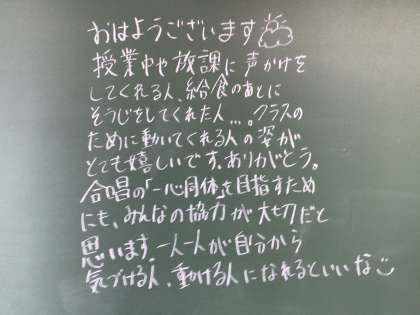 おはようございます
授業中や放課に声かけを
してくれる人、給食のあとに
そうじをしてくれた人...。クラスの
ために動いてくれる人の姿が
とても嬉しいです。ありがとう。
合唱の「一心同体」を目指すため
にも、みんなの協力が大切だと
思います。一人一人が自分から
気づける人、動ける人になれるといいな